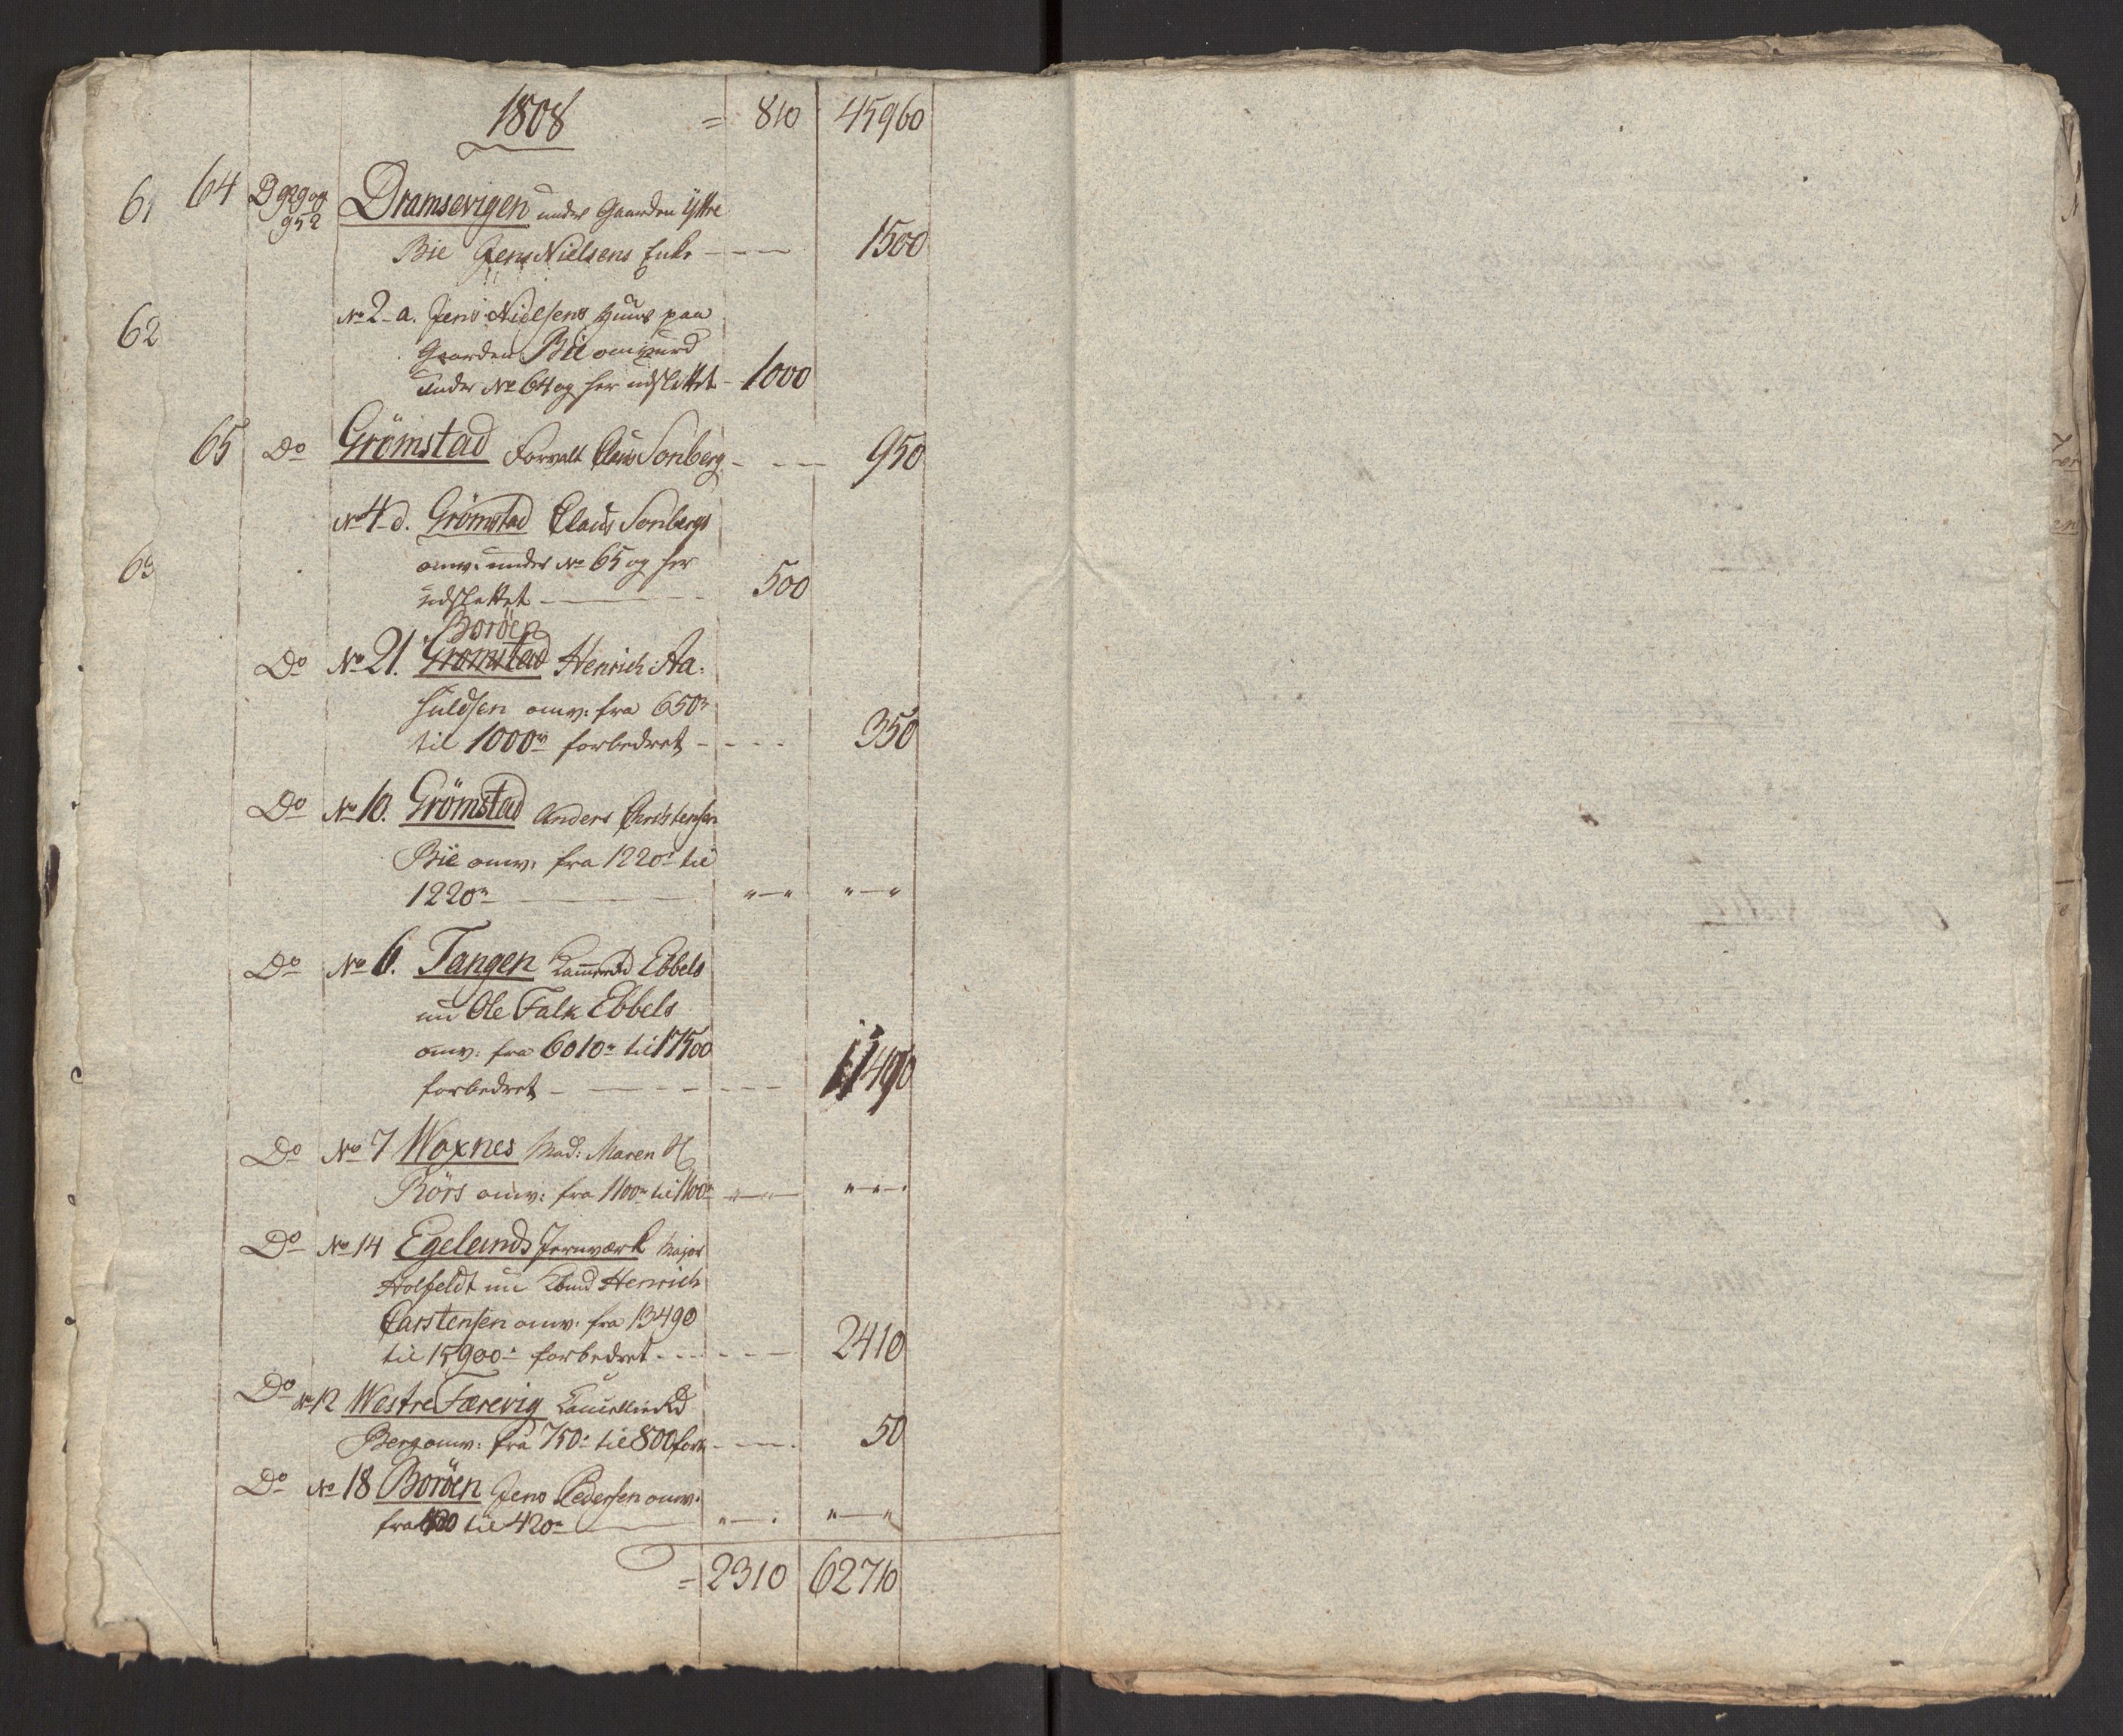 1808 = 810 45960
61 64 D 929 og Dramsevigen under Gaarden Ÿttre
952
Bie Jens Nielsens Enke - - - 1500
No 2 a. Jens Nielsens Huus paa
62
Gaarden Bie omvurd
under No 64 og her udslettet - 1000
65 Do Grömstad Forvalt Claus Sonberg - - - 950
No 4 d. Grömstad Claus Sonbergs
63 omv: under No 65 og her
udslettet - - - 500
Boröen
Do No 21. Grömstad Henrich Aa-
huldsen omv: fra 650
til 1000 forbedret - - - - 350
Do No 10. Grömstad Anders Christensen
Bie omv: fra 1220 til
1220 - - - " — " " — "
Do No 6. Tangen Kammerrd Ebbels
nu Ole Falk Ebbels
omv: fra 6010 til 17500
forbedret - - - - - - 11490
Do No 7 Woxnes Mad: Maren H
Börs omv: fra 1100 til 1100 " — " " — "
Do No 14 Egelands Jernværk Major
Holfeldt nu Kbmd Henrich
Carstensen omv: fra 13490
til 15900 forbedret - - - - - - 2410
Do No 12 Westre Færevig Cancellierd
Berg omv: fra 750 til 800 forb - - - 50
Do No 18 Boröen Jens Pedersen omv:
fra til 420 " — " " — "
= 2310 62710